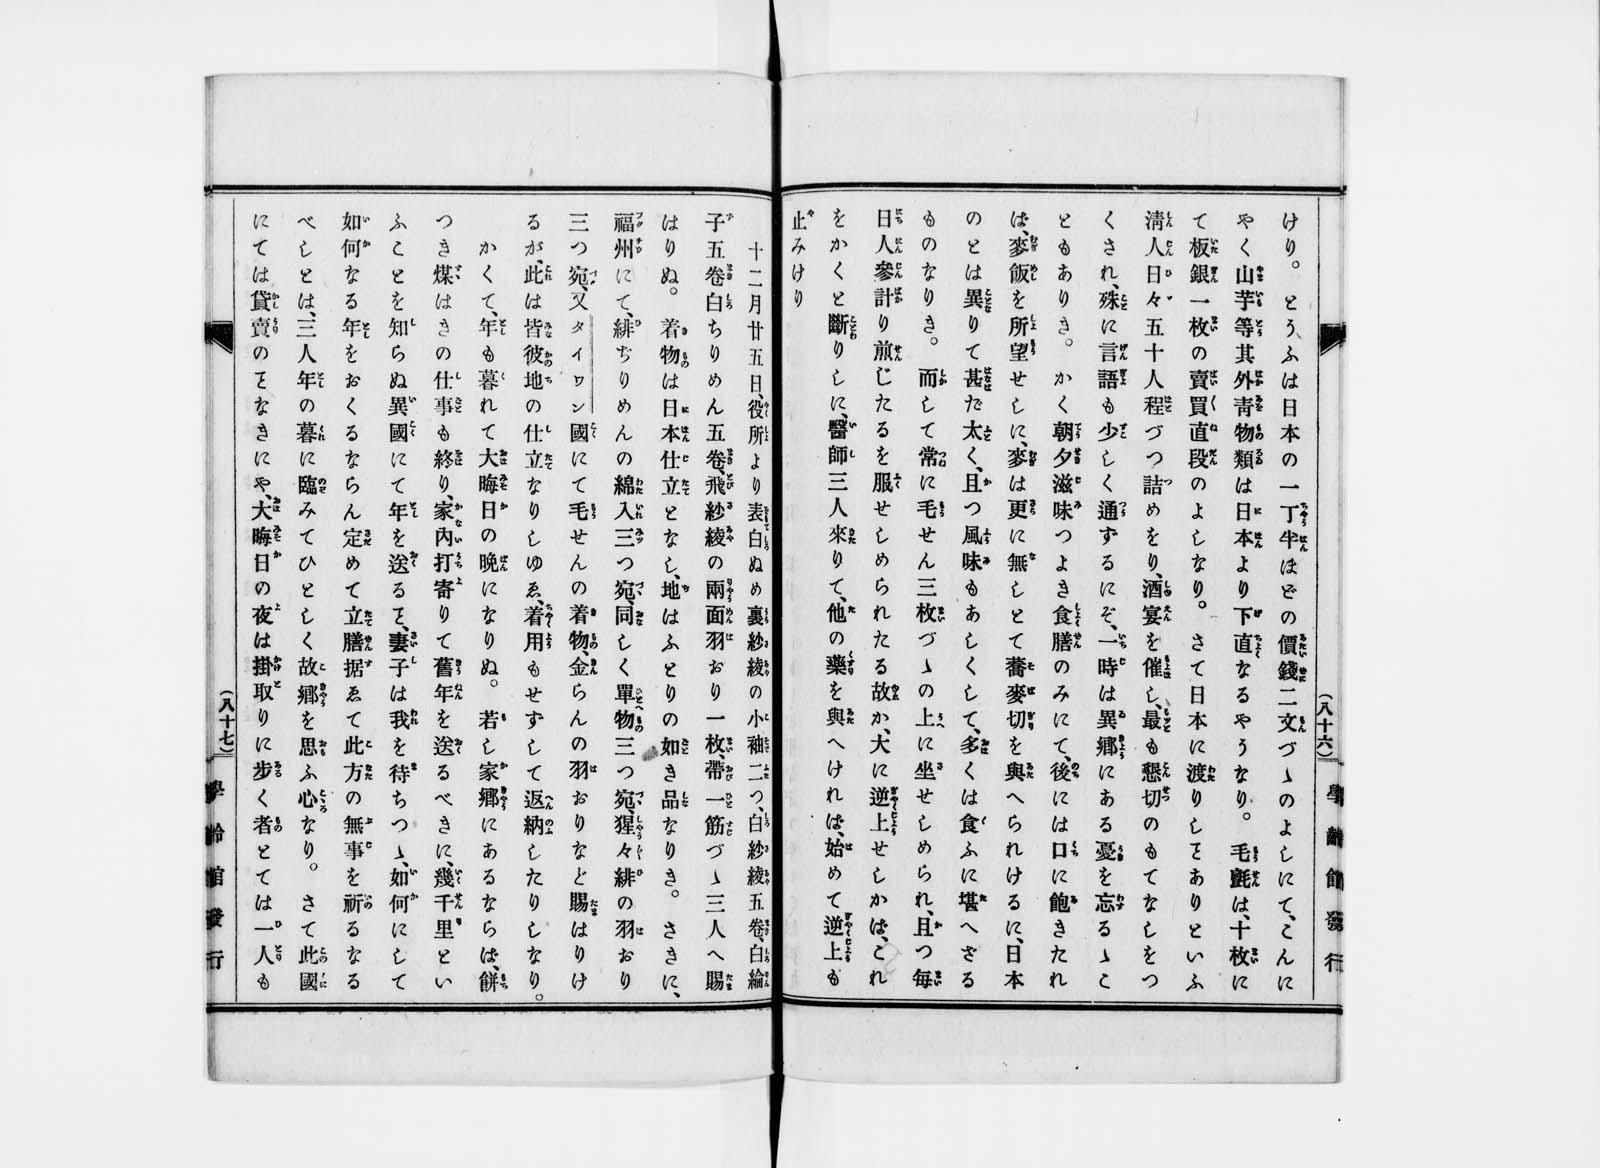 けり。とうふは日本の一丁半ほどの價錢二文づゝのよしにて、こんに
やく山芋等其外靑物類は日本より下直なるやうなり。毛氈は、十枚に
て板銀一枚の賣買直段のよしなり。さて日本に渡りしヿありといふ
淸人日々五十人程づつ詰めをり、酒宴を催し、最も懇切のもてなしをつ
くされ、殊に言語も少しく通ずるにぞ、一時は異鄕にある憂を忘るゝこ
ともありき。かく朝夕滋味つよき食膳のみにて、後には口に飽きたれ
ば、麥飯を所望せしに、麥は更に無しとて蕎麥切を與へられけるに、日本
のとは異りて甚だ太く、且つ風味もあしくして、多くは食ふに堪へざる
ものなりき。而して常に毛せん三枚づゝの上に坐せしめられ、且つ每
日人參計り煎じたるを服せしめられたる故か、大に逆上せしかば、これ
をかくと斷りしに、醫師三人來りて、他の藥を與へければ、始めて逆上も
止みけり
(八十六)
學齡館發行
十二月廿五日、役所より表白ぬめ裏紗綾の小袖二つ、白紗綾五卷、白綸
子五卷白ちりめん五卷、飛紗綾の兩面羽おり一枚、帶一筋づゝ三人へ賜
はりぬ。着物は日本仕立となし、地はふとりの如き品なりき。さきに、
福州にて、緋ぢりめんの綿入三つ宛、同しく單物三つ宛、猩々緋の羽おり
三つ宛、又タイワン國にて毛せんの着物、金らんの羽おりなど賜はりけ
るが、此は皆彼地の仕立なりしゆゑ、着用もせずして返納したりしなり。
かくて、年も暮れて大晦日の晚になりぬ。若し家鄕にあるならば、餅
つき煤はきの仕事も終り、家內打寄りて舊年を送るべきに、幾千里とい
ふことを知らぬ異國にて年を送るヿ、妻子は我を待ちつゝ、如何にして
如何なる年をおくるならん定めて立膳据ゑて此方の無事を祈るなる
べしとは、三人年の暮に臨みてひとしく故鄕を思ふ心なり。さて此國
にては貸賣のヿなきにや、大晦日の夜は掛取りに步く者とては一人も
(八十七)
學齡館發行